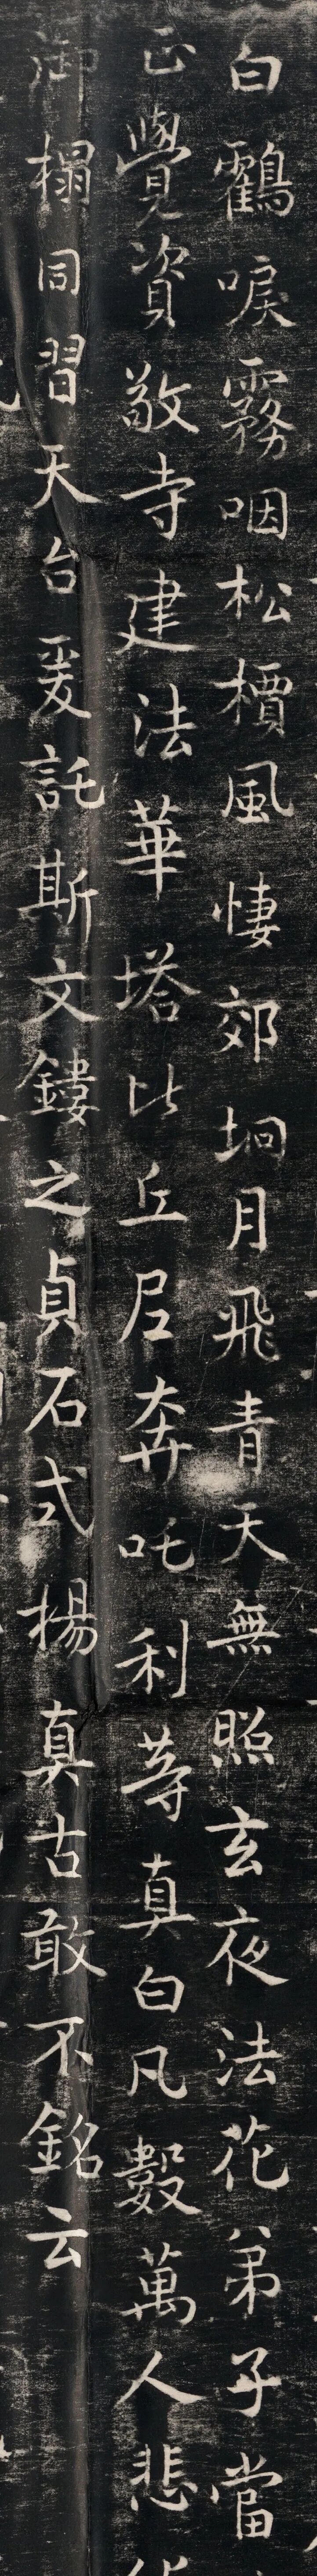 白鶴唳霧咽松檟風悽郊坰月飛青天無照玄夜法花弟子當
正覺資敬寺建法華塔比丘尼奔吒利等真白凡數萬人悲
御榻同習天台爰託斯文鏤之貞石式揚真古敢不銘云